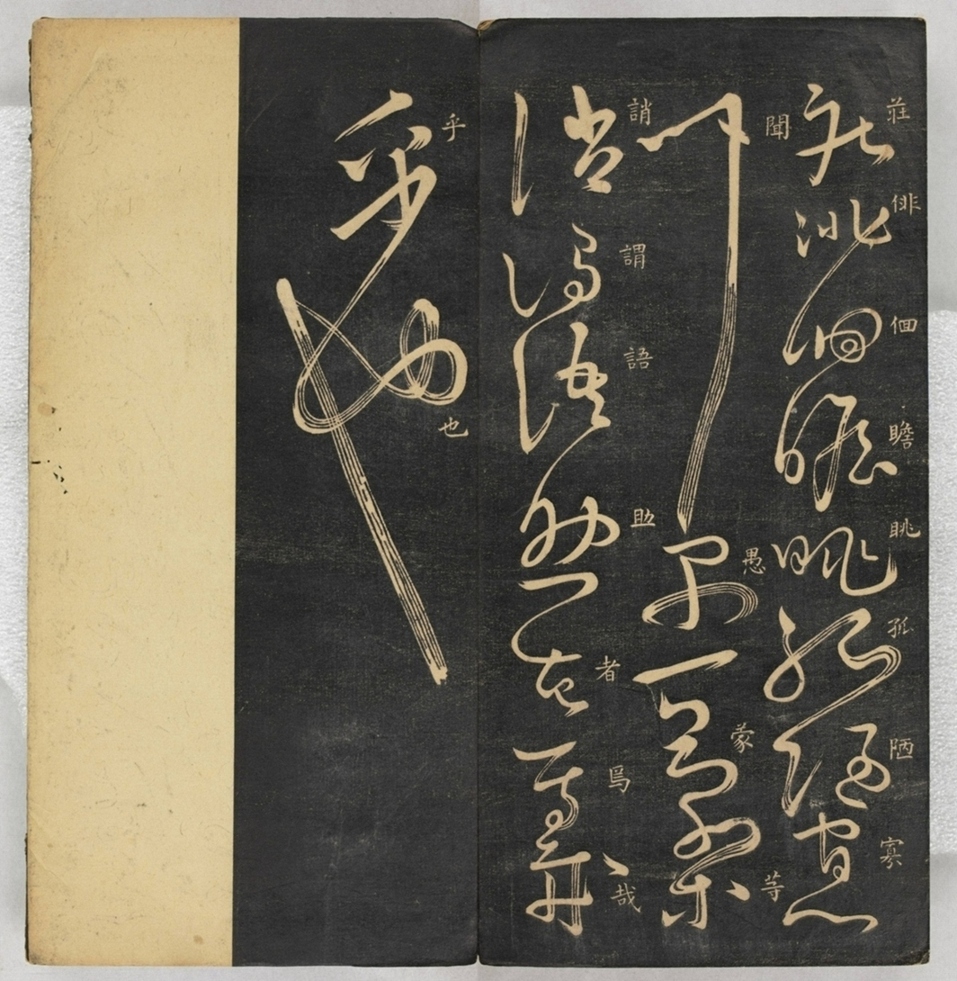 莊俳佪瞻眺孤陋寡
聞愚蒙等
誚謂語助者焉哉
乎也